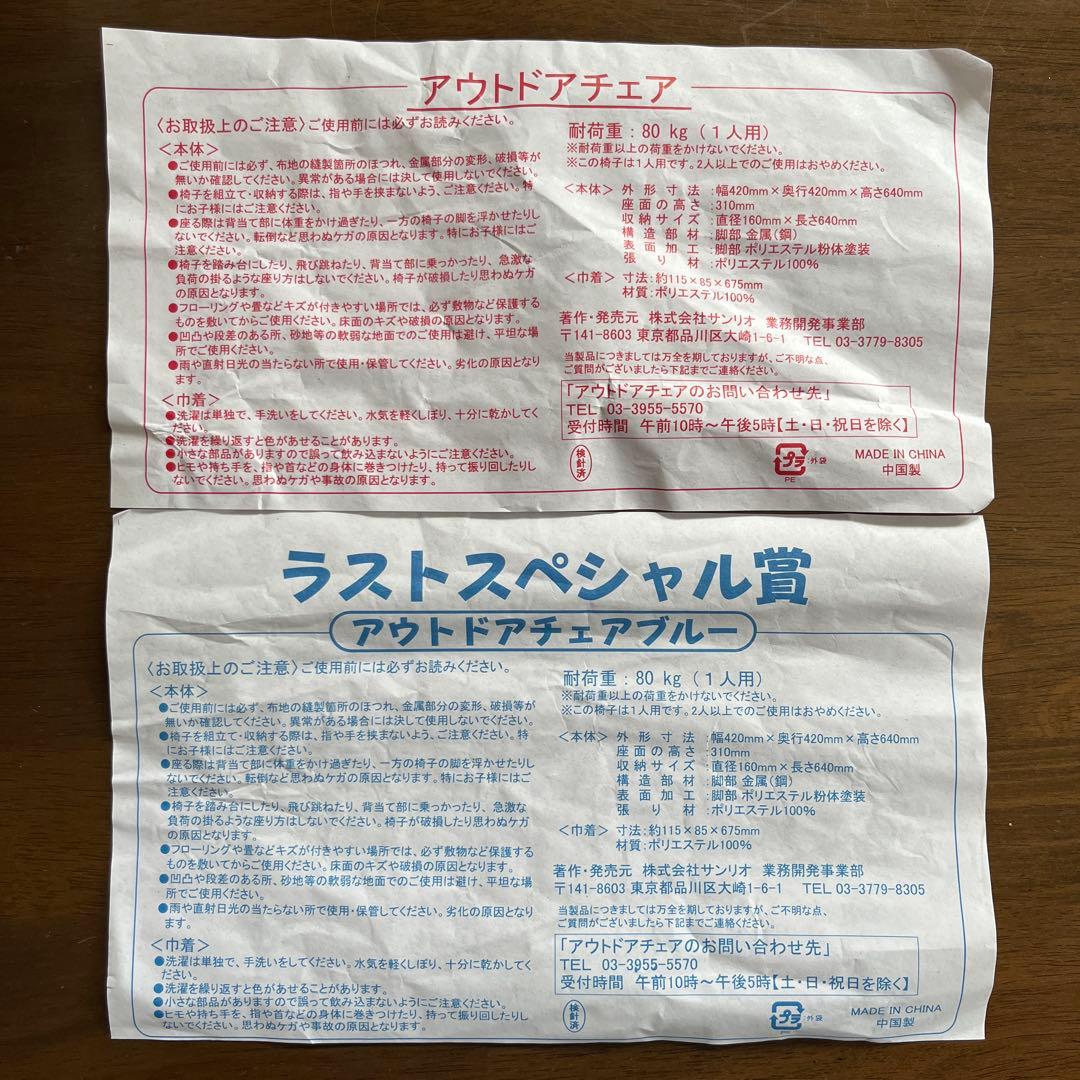 アウトドアチェア
〈お取扱上のご注意〉ご使用前には必ずお読みください。
＜本体＞
●ご使用前には必ず、布地の縫製箇所のほつれ、金属部分の変形、破損等が
無いか確認してください。異常がある場合には決して使用しないでください。
●椅子を組立て・収納する際は、指や手を挟まないよう、ご注意ください。特
にお子様にはご注意ください。
●座る際は背当て部に体重をかけ過ぎたり、一方の椅子の脚を浮かせたりし
ないでください。転倒など思わぬケガの原因となります。特にお子様にはご
注意ください。
●椅子を踏み台にしたり、飛び跳ねたり、背当て部に乗っかったり、急激な
負荷の掛るような座り方はしないでください。椅子が破損したり思わぬケガ
の原因となります。
●フローリングや畳などキズが付きやすい場所では、必ず敷物など保護する
ものを敷いてからご使用ください。床面のキズや破損の原因となります。
●凹凸や段差のある所、砂地等の軟弱な地面でのご使用は避け、平坦な場
所でご使用ください。
●雨や直射日光の当たらない所で使用・保管してください。劣化の原因となり
ます。
＜巾着＞
●洗濯は単独で、手洗いをしてください。水気を軽くしぼり、十分に乾かしてく
ださい。
●洗濯を繰り返すと色があせることがあります。
●小さな部品がありますので誤って飲み込まないようにご注意ください。
●ヒモや持ち手を、指や首などの身体に巻きつけたり、持って振り回したりし
ないでください。思わぬケガや事故の原因となります。
耐荷重：80 kg（１人用）
※耐荷重以上の荷重をかけないでください。
※この椅子は1人用です。2人以上でのご使用はおやめください。
＜本体＞ 外形寸法：幅420mm×奥行420mm×高さ640mm
座面の高さ：310mm
収納サイズ：直径160mm×長さ640mm
構造部材：脚部 金属（鋼）
表面加工：脚部 ポリエステル粉体塗装
張り材：ポリエステル100%
＜巾着＞ 寸法：約115×85×675mm
材質：ポリエステル100%
著作・発売元 株式会社サンリオ 業務開発事業部
〒141-8603 東京都品川区大崎1-6-1 TEL 03-3779-8305
当製品につきましては万全を期しておりますが、ご不明な点、
ご質問がございましたら下記までご連絡ください。
「アウトドアチェアのお問い合わせ先」
TEL 03-3955-5570
受付時間 午前10時～午後5時【土・日・祝日を除く】
検針済
プラ 外袋
PE
MADE IN CHINA
中国製
ラストスペシャル賞
アウトドアチェアブルー
〈お取扱上のご注意〉ご使用前には必ずお読みください。
＜本体＞
●ご使用前には必ず、布地の縫製箇所のほつれ、金属部分の変形、破損等が
無いか確認してください。異常がある場合には決して使用しないでください。
●椅子を組立て・収納する際は、指や手を挟まないよう、ご注意ください。特
にお子様にはご注意ください。
●座る際は背当て部に体重をかけ過ぎたり、一方の椅子の脚を浮かせたりし
ないでください。転倒など思わぬケガの原因となります。特にお子様にはご
注意ください。
●椅子を踏み台にしたり、飛び跳ねたり、背当て部に乗っかったり、急激な
負荷の掛るような座り方はしないでください。椅子が破損したり思わぬケガ
の原因となります。
●フローリングや畳などキズが付きやすい場所では、必ず敷物など保護する
ものを敷いてからご使用ください。床面のキズや破損の原因となります。
●凹凸や段差のある所、砂地等の軟弱な地面でのご使用は避け、平坦な場
所でご使用ください。
●雨や直射日光の当たらない所で使用・保管してください。劣化の原因となり
ます。
＜巾着＞
●洗濯は単独で、手洗いをしてください。水気を軽くしぼり、十分に乾かしてく
ださい。
●洗濯を繰り返すと色があせることがあります。
●小さな部品がありますので誤って飲み込まないようにご注意ください。
●ヒモや持ち手を、指や首などの身体に巻きつけたり、持って振り回したりし
ないでください。思わぬケガや事故の原因となります。
耐荷重：80 kg（１人用）
※耐荷重以上の荷重をかけないでください。
※この椅子は1人用です。2人以上でのご使用はおやめください。
＜本体＞ 外形寸法：幅420mm×奥行420mm×高さ640mm
座面の高さ：310mm
収納サイズ：直径160mm×長さ640mm
構造部材：脚部 金属（鋼）
表面加工：脚部 ポリエステル粉体塗装
張り材：ポリエステル100%
＜巾着＞ 寸法：約115×85×675mm
材質：ポリエステル100%
著作・発売元 株式会社サンリオ 業務開発事業部
〒141-8603 東京都品川区大崎1-6-1 TEL 03-3779-8305
当製品につきましては万全を期しておりますが、ご不明な点、
ご質問がございましたら下記までご連絡ください。
「アウトドアチェアのお問い合わせ先」
TEL 03-3955-5570
受付時間 午前10時～午後5時【土・日・祝日を除く】
検針済
プラ 外袋
MADE IN CHINA
中国製